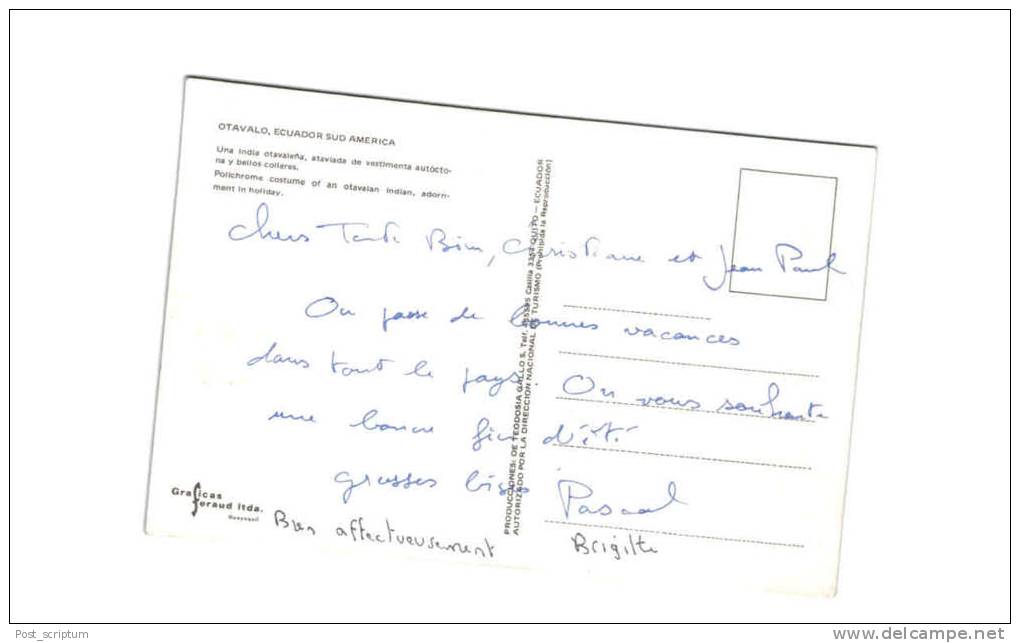 OTAVALO, ECUADOR SUD AMERICA
Una india otavaleña, ataviada de vestimenta autócto-
na y bellos collares.
Polichrome costume of an otavalan indian, adorn-
ment in holiday.
Chers Tante Bim, Christiane et Jean Paul
On passe de bonnes vacances
dans tout le pays. On vous souhaite
une bonne fin d'été
grosses bises Pascal
Bien affectueusement Brigitte
PRODUCCIONES: DE TEODOSIA GALLO S. Telf. Casilla QUITO — ECUADOR
AUTORIZADO POR LA DIRECCION NACIONAL DE TURISMO (Prohibida la Reproducción)
Graficas
feraud ltda.
Guayaquil
Post_scriptum
www.delcampe.net